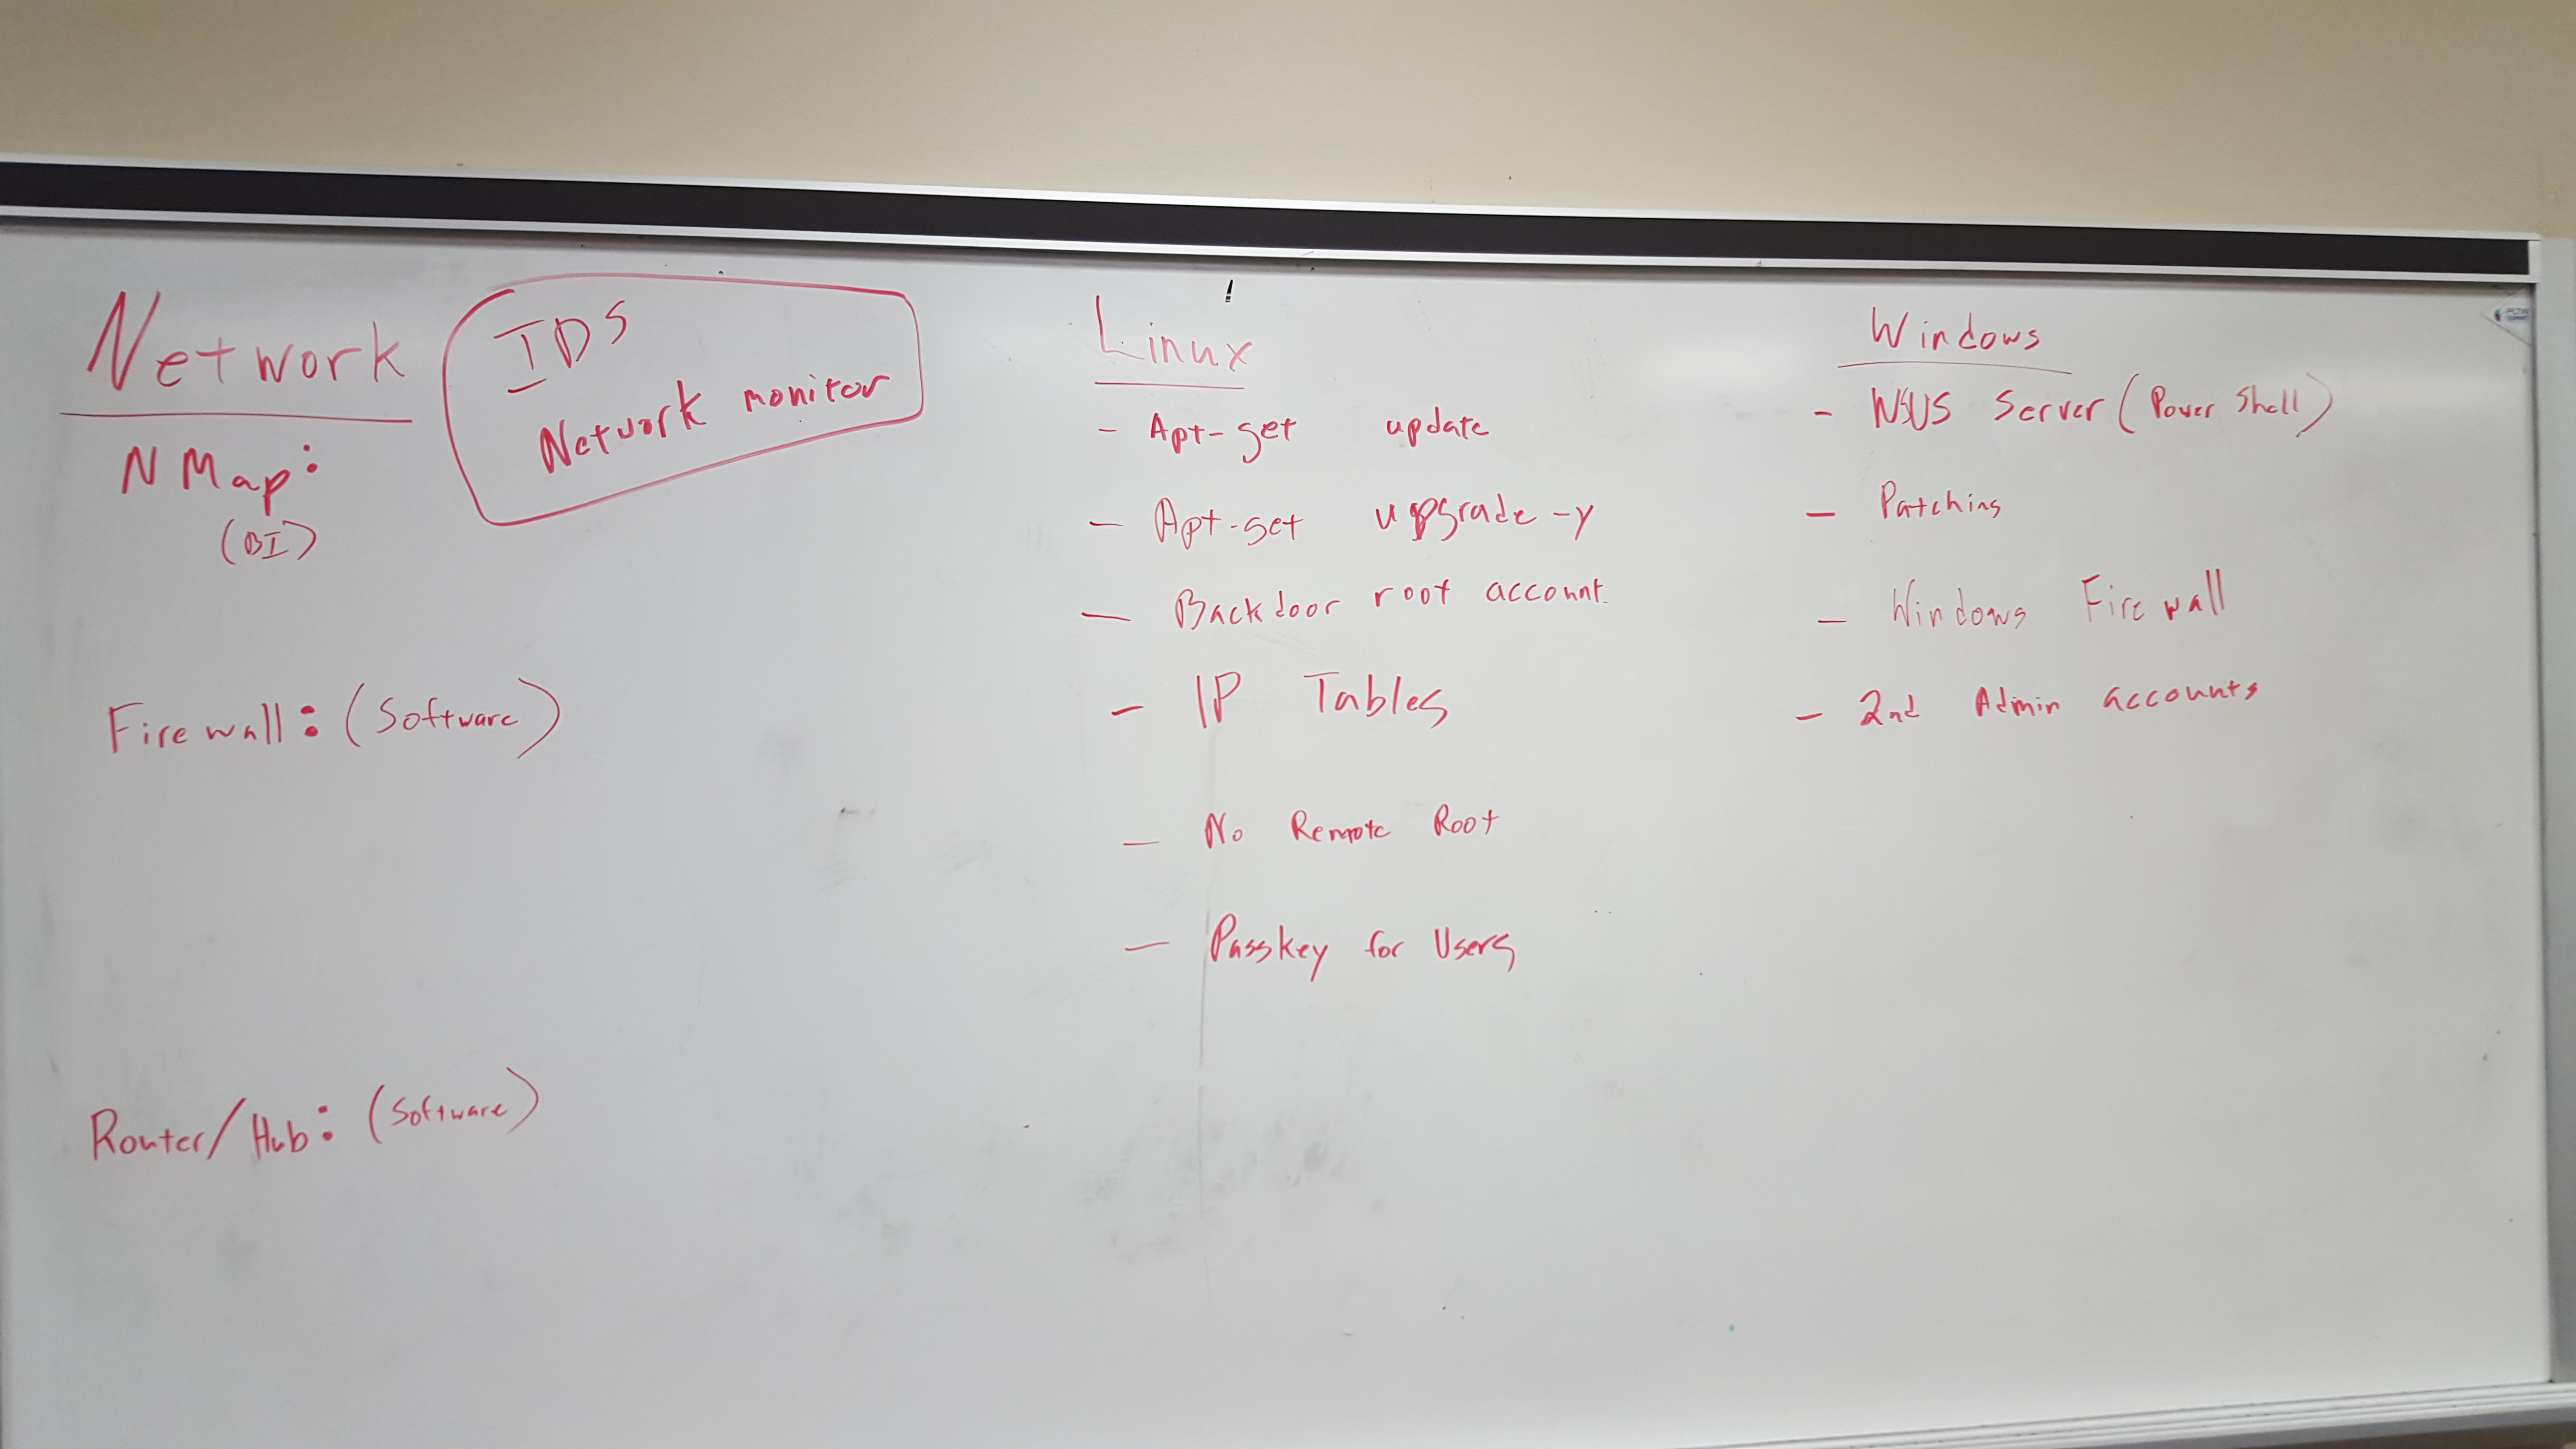 Network
IDS
Network monitor
NMap:
(BI)
Firewall: (Software)
Router/Hub: (Software)
Linux
- Apt-get update
- Apt-get upgrade -y
- Backdoor root account
- IP Tables
- No Remote Root
- Passkey for Users
Windows
- WSUS Server (Power Shell)
- Patching
- Windows Firewall
- 2nd Admin accounts